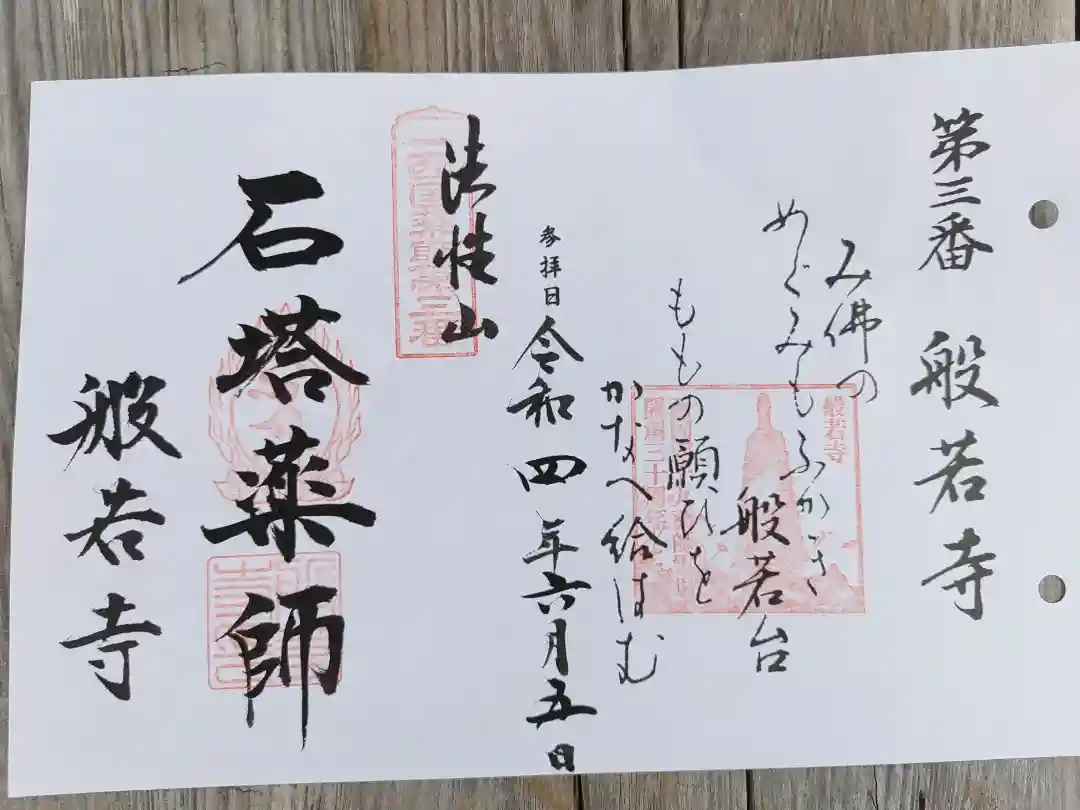 第三番 般若寺
み佛の
めぐみもふかき
般若台
ももの願ひを
かなへ給はむ
般若寺
参拝日 令和四年六月五日
法性山
西国薬師第三番
石塔薬師
般若寺